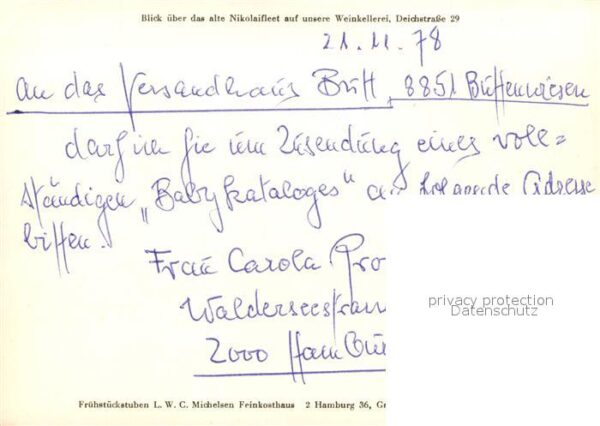 Blick über das alte Nikolaifleet auf unsere Weinkellerei, Deichstraße 29
21.11.78
An das Versandhaus Butt, 8851 Buttenwiesen
darf ich Sie um Zusendung eines voll=
ständigen „Babykataloges" an Adresse
bitten.
Frau Carola Pro
Walderseestra
2000 Hambu
privacy protection
Datenschutz
Frühstückstuben L. W. C. Michelsen Feinkosthaus 2 Hamburg 36, Gr